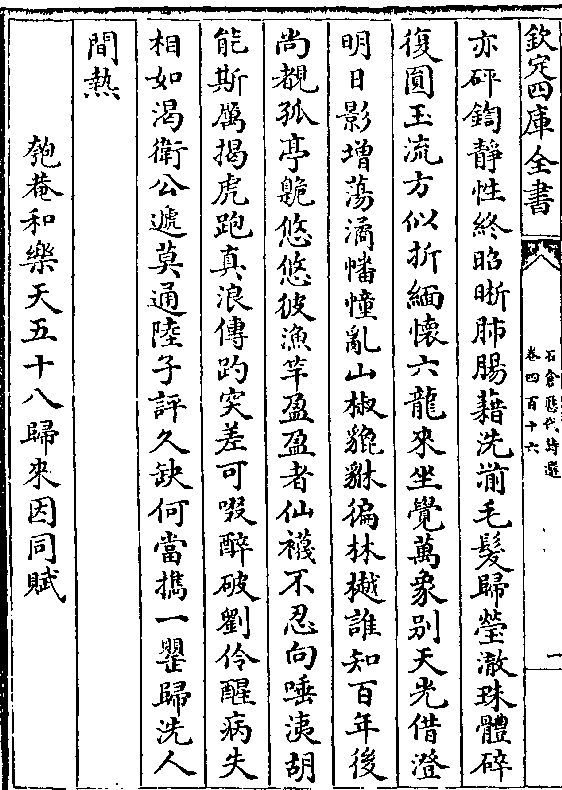 欽定四庫全書
石倉歷代詩選
卷四百十六
一
亦砰鍧靜性終昭晣肺腸藉洗湔毛髪歸瑩澈珠體碎
復圓玉流方似折緬懷六龍來坐覺萬象别天光借澄
明日影增蕩潏幡幢亂山椒貔貅徧林樾誰知百年後
尚覩孤亭臲悠悠彼漁竿盈盈者仙襪不忍向唾洟胡
能斯厲揭虎跑真浪傳趵突差可啜醉破劉伶醒病失
相如渴衛公遞莫通陸子評久缺何當擕一罌歸洗人
間熱
匏菴和樂天五十八歸來因同賦